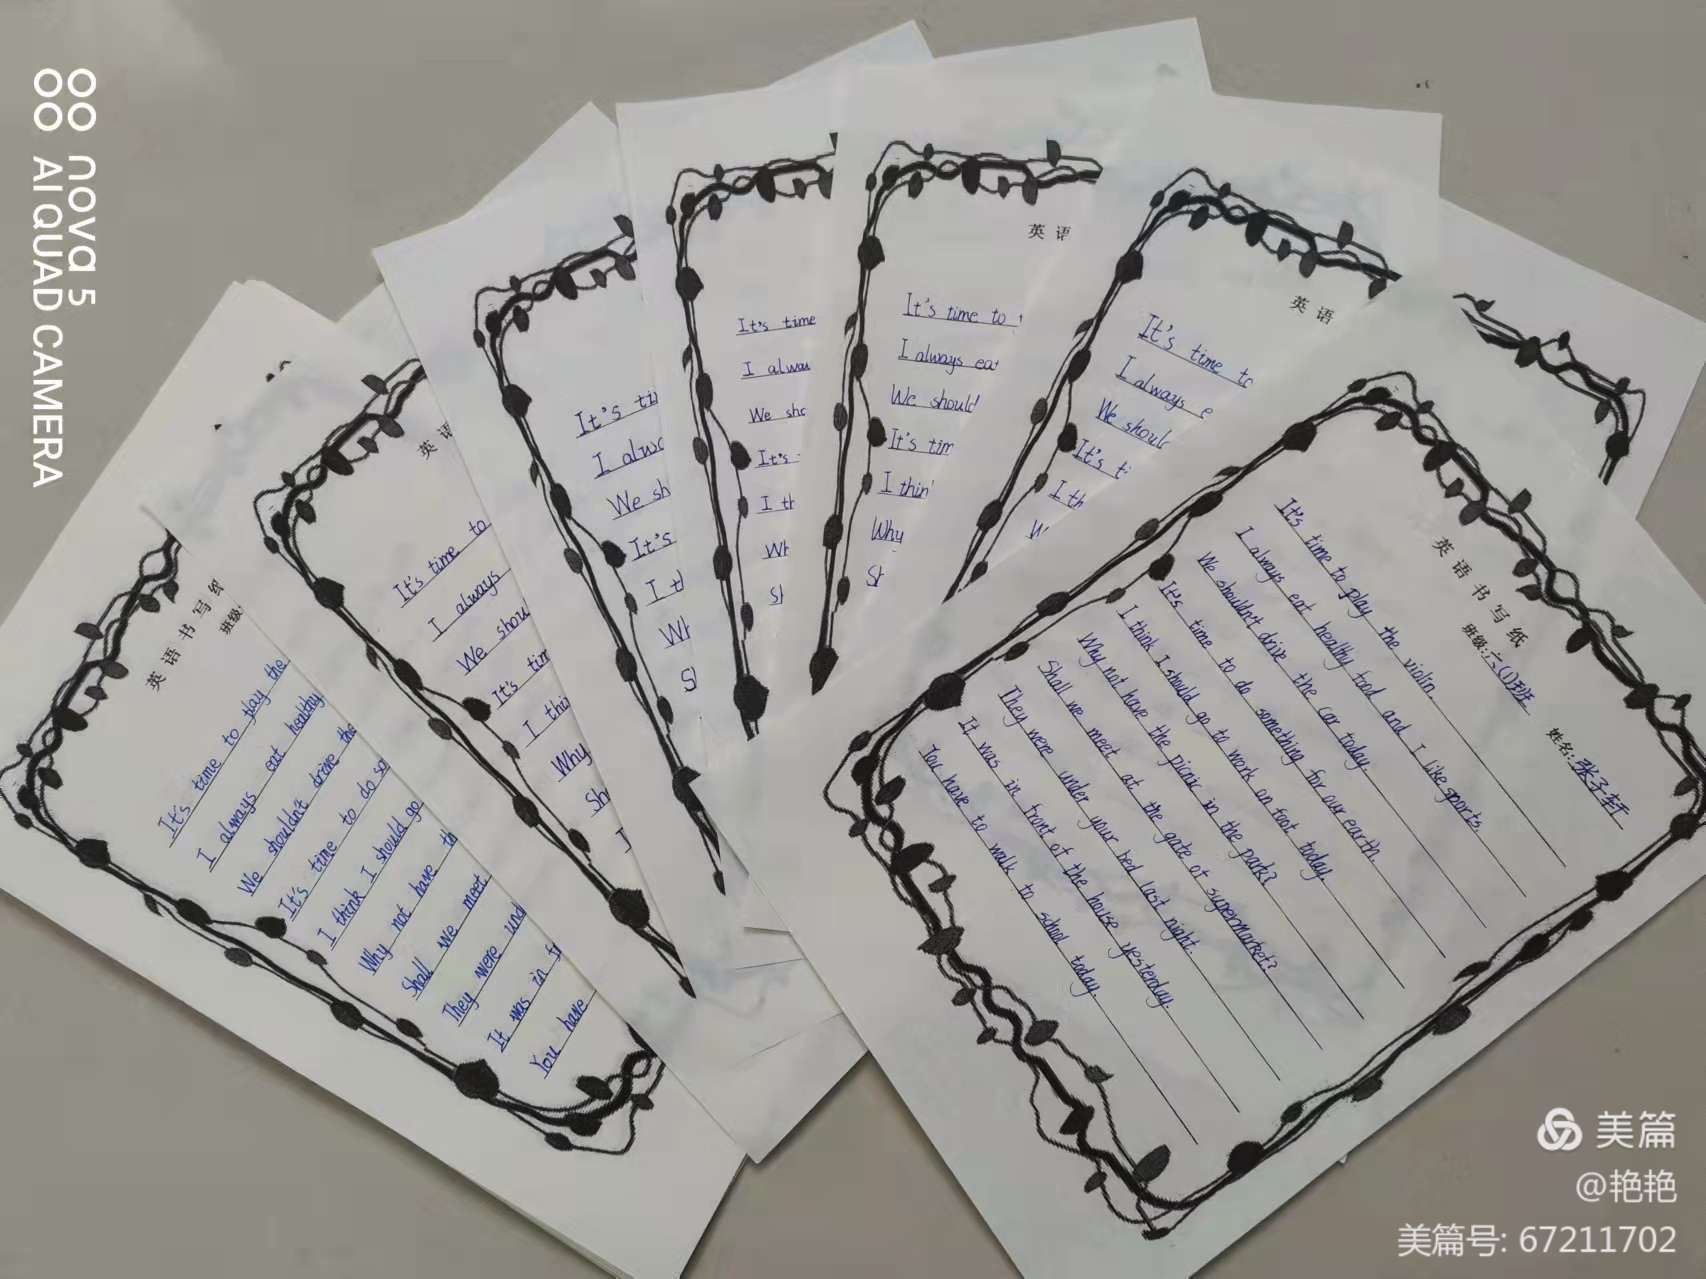 nova 5
AI QUAD CAMERA
英语书写纸
班级
It's time to play the
I always eat healthy
We shouldn't drive the
It's time to do so
I think I should go
Why not have th
Shall we meet
They were und
It was in fr
You have
英语
It's time to
I always
We shou
It's tim
I thi
Why
Sh
It's ti
I alwa
We sh
It's
I th
Wh
S
It's time
I alwa
We sho
It's
I th
Wh
Sh
英语
It's time to
I always eat
We should
It's tim
I thin
Why
Sh
英语
It's time to
I always e
We should
It's ti
I th
W
英语书写纸
班级:六(1)班 姓名:张子轩
It's time to play the violin.
I always eat healthy food and I like sports.
We shouldn't drive the car today.
It's time to do something for our earth.
I think I should go to work on foot today.
Why not have the picnic in the park?
Shall we meet at the gate of supermarket?
They were under your bed last night.
It was in front of the house yesterday.
You have to walk to school today.
美篇
@艳艳
美篇号: 67211702